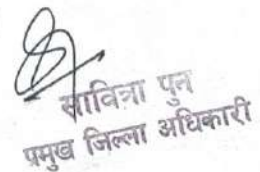 सावित्रा पुन
प्रमुख जिल्ला अधिकारी